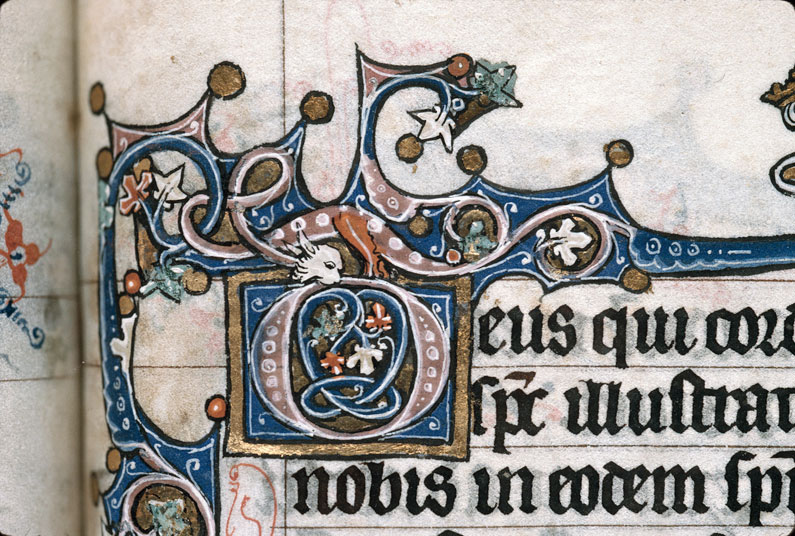 Deus qui cord
sp̄c illustrat
nobis in eodem sp̄